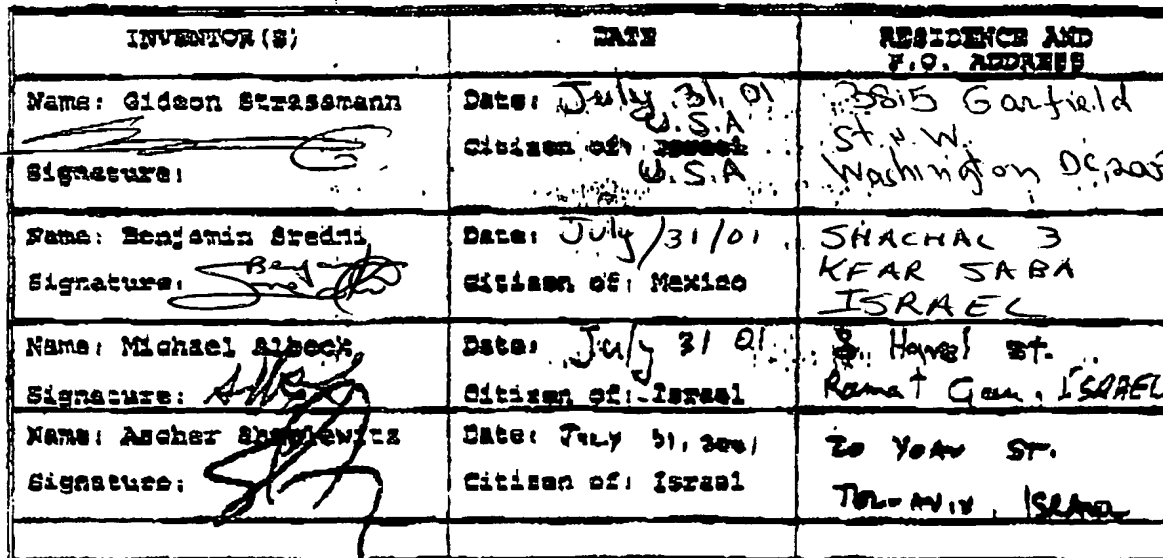 INVENTOR(S) DATE RESIDENCE AND P.O. ADDRESS
Name: Gideon Strassmann
Signature:
Date: July 31, 01
U.S.A
Citizen of: Israel
U.S.A
3815 Garfield
St. N.W.
Washington DC,
Name: Benjamin Sredni
Signature:
Date: July/31/01
Citizen of: Mexico
SHACHAL 3
KFAR SABA
ISRAEL
Name: Michael Albeck
Signature:
Date: July 31 01
Citizen of: Israel
St.
Ramat Gan, ISRAEL
Name: Ascher
Signature:
Date: July 31, 2001
Citizen of: Israel
20 YOAV ST.
TEL-AVIV, ISRAEL